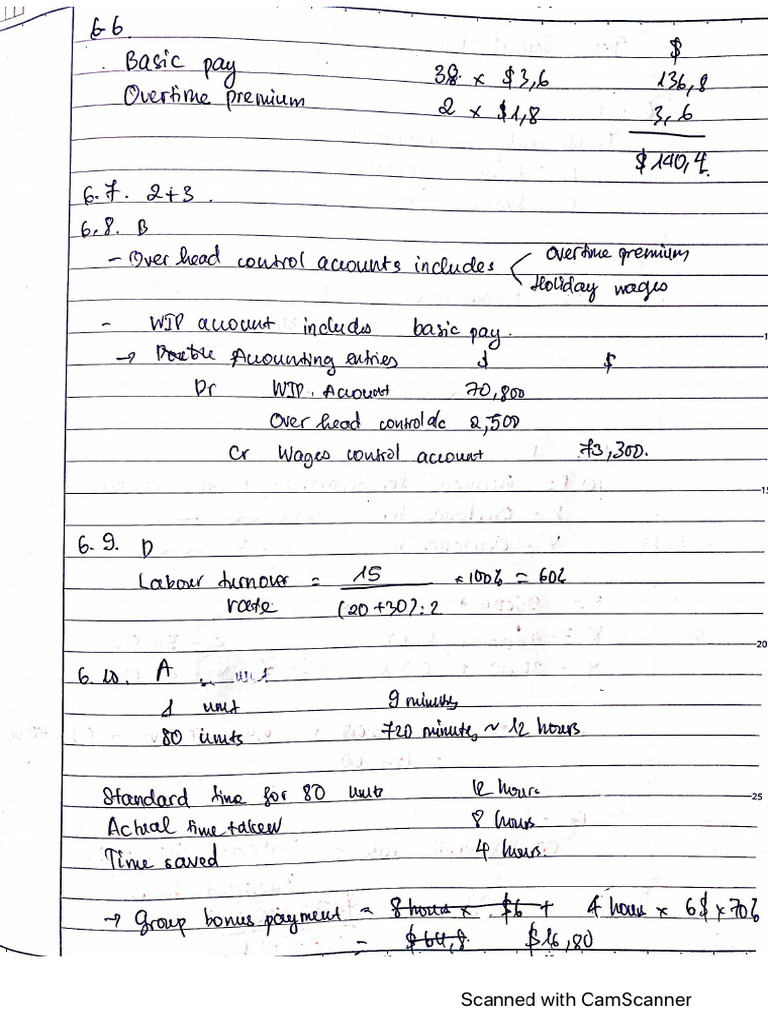 6.6.
$
Basic pay 38 x $3,6 136,8
Overtime premium 2 x $1,8 3,6
$140,4.
6.7. 2+3.
6.8. B
- Over head control accounts includes < Overtime premium
Holiday wages
- WIP account includes basic pay.
→ Accounting entries $ $
Dr WIP. Account 70,800
Over head control a/c 2,500
Cr Wages control account 73,300.
6.9. D
Labour turnover = 15 x 100% = 60%
rate (20+30):2
6.10. A
1 unit 9 minutes
80 units 720 minutes ~ 12 hours
Standard time for 80 units 12 hours
Actual time taken 8 hours
Time saved 4 hours.
→ Group bonus payment = 8 hours x $6 + 4 hours x 6$ x 70%
= $64,8 $16,80
Scanned with CamScanner
15
20
25